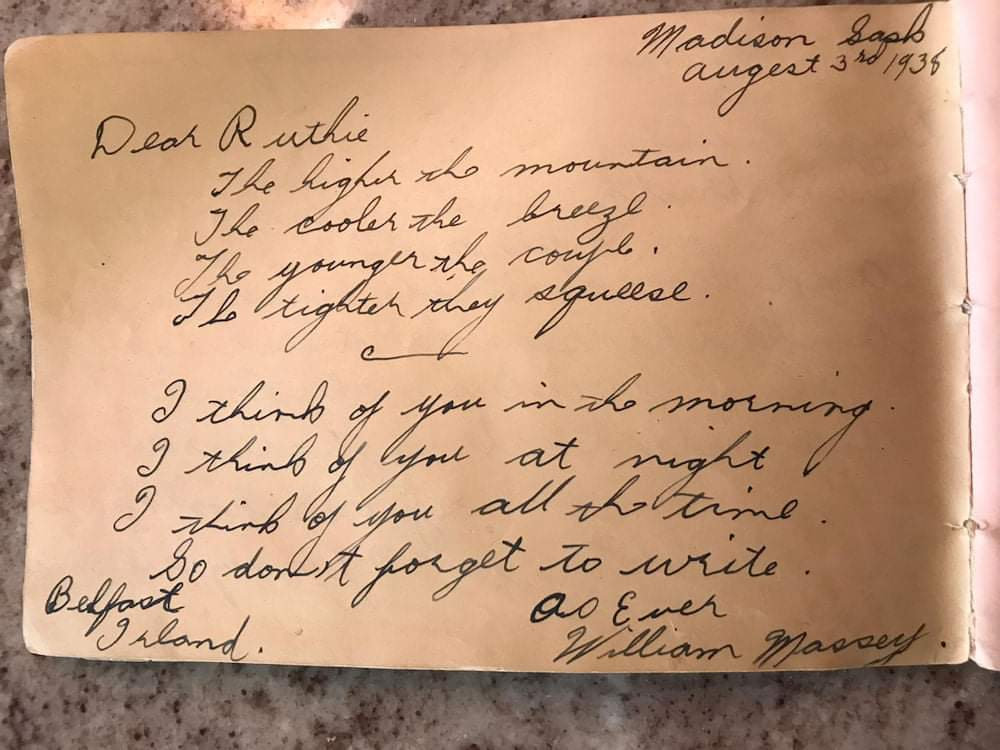 Madison Sask
augest 3rd 1938
Dear Ruthie
The higher the mountain.
The cooler the breeze.
The younger the couple.
The tighter they squeese.
I think of you in the morning.
I think of you at night
I think of you all the time.
So don't forget to write.
Belfast
Irland.
as Ever
William Massey.